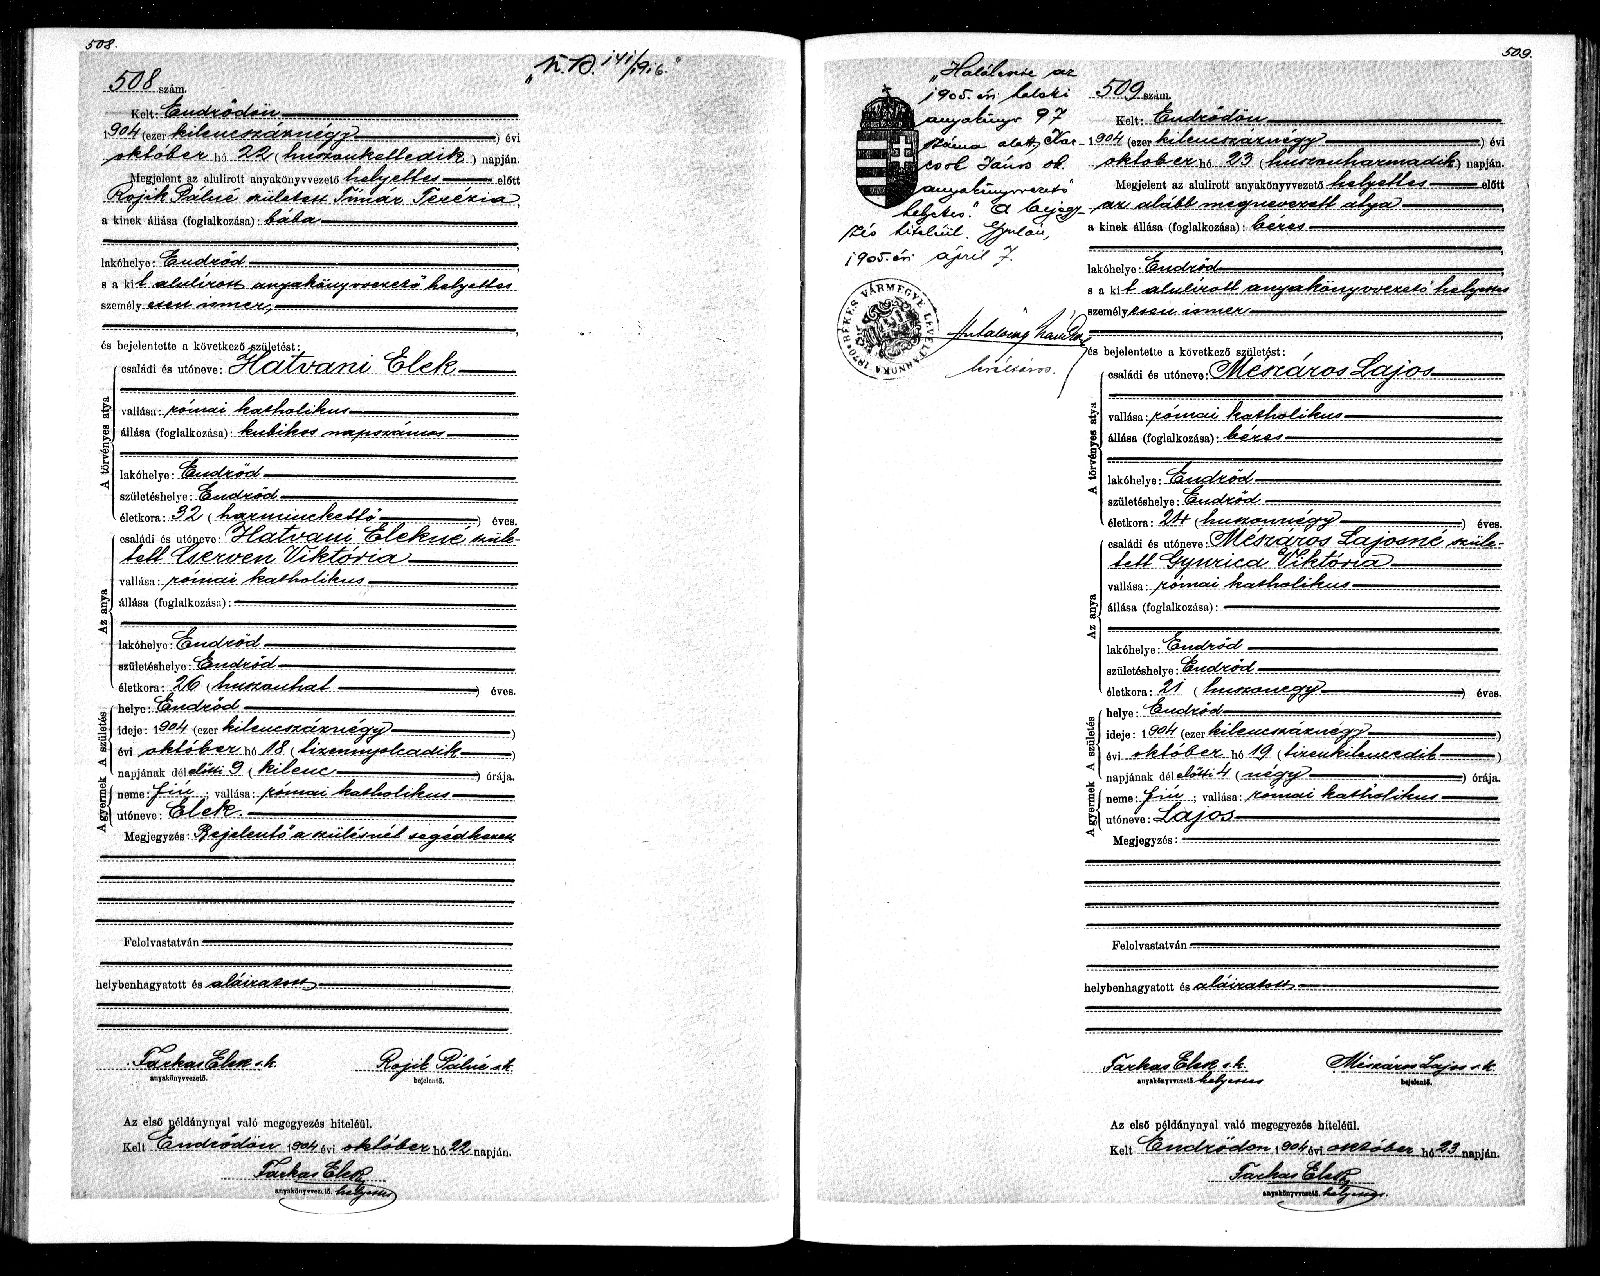 508.
508 szám.
„N.B. 141/1916."
Kelt: Endrődön
1904 (ezer kilencszáznégy) évi
október hó 22 (huszonkettedik) napján.
Megjelent az alulirott anyakönyvvezető helyettes előtt
Rojik Pálné született Tímár Terézia
a kinek állása (foglalkozása): bába
lakóhelye: Endrőd
s a kit alulírott anyakönyvvezető helyettes
személyesen ismer,
és bejelentette a következő születést:
A törvényes atya
családi és utóneve: Hatvani Elek
vallása: római katholikus
állása (foglalkozása): kubikos napszámos
lakóhelye: Endrőd
születéshelye: Endrőd
életkora: 32 (harminckettő) éves.
Az anya
családi és utóneve: Hatvani Elekné szüle-
tett Cserven Viktória
vallása: római katholikus
állása (foglalkozása):
lakóhelye: Endrőd
születéshelye: Endrőd
életkora: 26 (huszonhat) éves.
A születés
helye: Endrőd
ideje: 1904 (ezer kilencszáznégy)
évi október hó 18 (tizennyolcadik)
napjának dél előtti 9 (kilenc) órája.
A gyermek
neme: fiú; vallása: római katholikus
utóneve: Elek.
Megjegyzés: Bejelentő a szülésnél segédkezett
Felolvastatván
helybenhagyatott és aláiratott
Farkas Elek s.k. Rojik Pálné s.k.
anyakönyvvezető. bejelentő.
Az első példánynyal való megegyezés hiteléül.
Kelt Endrődön 1904 évi október hó 22 napján.
Farkas Elek
anyakönyvvezető. helyettes
509.
„Halálesete az
1905. évi halotti
anyakönyv 97
száma alatt, Kar-
csol János ok.
anyakönyvvezető
helyettes." A bejegy-
zés hiteléül. Gyulán,
1905. évi április 7.
BÉKÉS VÁRMEGYE LEVÉLTÁRNOKA 1870
509 szám.
Kelt: Endrődön
1904 (ezer kilencszáznégy) évi
október hó 23 (huszonharmadik) napján.
Megjelent az alulirott anyakönyvvezető helyettes előtt
az alább megnevezett atya
a kinek állása (foglalkozása): béres
lakóhelye: Endrőd
s a kit alulirott anyakönyvvezető helyettes
személyesen ismer
és bejelentette a következő születést:
A törvényes atya
családi és utóneve: Mészáros Lajos
vallása: római katholikus
állása (foglalkozása): béres
lakóhelye: Endrőd
születéshelye: Endrőd
életkora: 24 (huszonnégy) éves.
Az anya
családi és utóneve: Mészáros Lajosné szüle-
tett Gyurica Viktória
vallása: római katholikus
állása (foglalkozása):
lakóhelye: Endrőd
születéshelye: Endrőd
életkora: 21 (huszonegy) éves.
A születés
helye: Endrőd
ideje: 1904 (ezer kilencszáznégy)
évi október hó 19 (tizenkilencedik)
napjának dél előtti 4 (négy) órája.
A gyermek
neme: fiú; vallása: római katholikus
utóneve: Lajos
Megjegyzés:
Felolvastatván
helybenhagyatott és aláiratott
Farkas Elek s.k. Mészáros Lajos s.k.
anyakönyvvezető helyettes bejelentő.
Az első példánynyal való megegyezés hiteléül.
Kelt Endrődön 1904 évi október hó 23 napján.
Farkas Elek
anyakönyvvezető. helyettes.